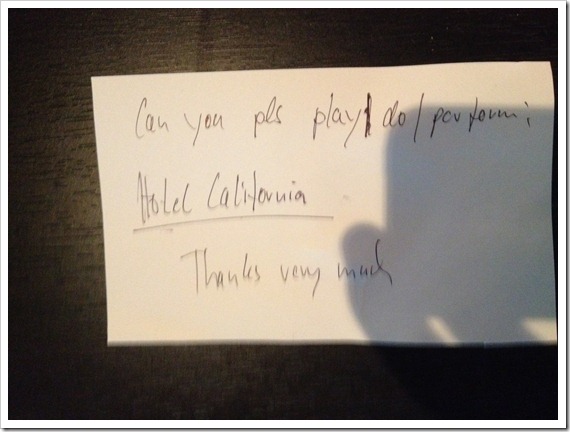 Can you pls play/do/perform:
Hotel California
Thanks very much